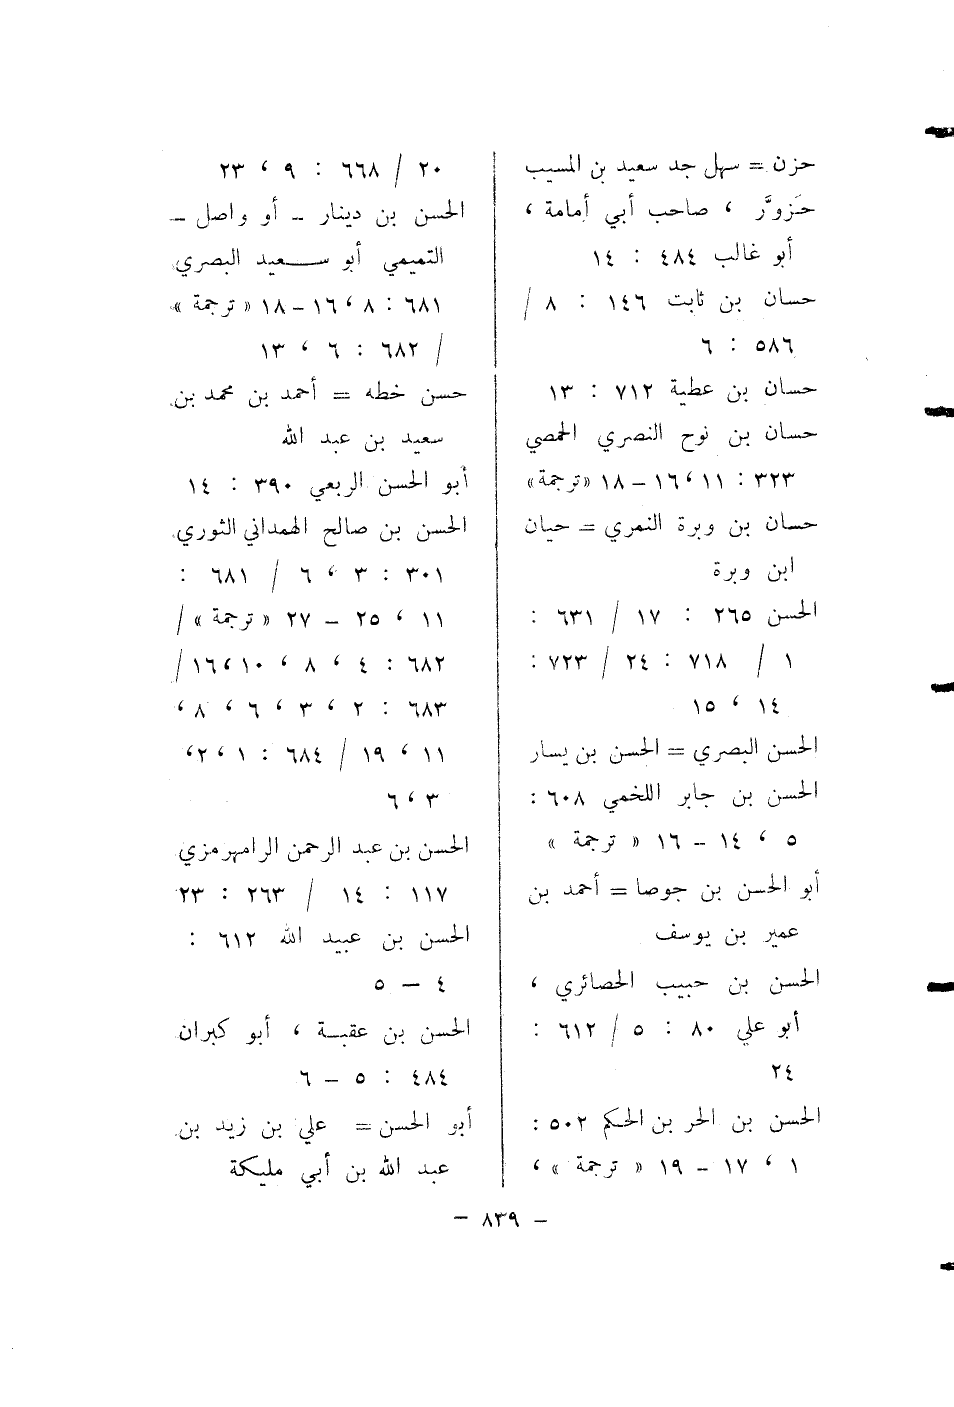 حزن = سهل جد سعيد بن المسيب
حَزوَّر ، صاحب أبي أمامة ،
أبو غالب ٤٨٤ : ١٤
حسان بن ثابت ١٤٦ : ٨ /
٥٨٦ : ٦
حسان بن عطية ٧١٢ : ١٣
حسان بن نوح النصري الحمصي
٣٢٣ : ١١ ، ١٦ – ١٨ « ترجمة »
حسان بن وبرة النمري = حيان
ابن وبرة
الحسن ٢٦٥ : ١٧ / ٦٣١ :
١ / ٧١٨ : ٢٤ / ٧٢٣ :
١٤ ، ١٥
الحسن البصري = الحسن بن يسار
الحسن بن جابر اللخمي ٦٠٨ :
٥ ، ١٤ – ١٦ « ترجمة »
أبو الحسن بن جوصا = أحمد بن
عمير بن يوسف
الحسن بن حبيب الحصائري ،
أبو علي ٨٠ : ٥ / ٦١٢ :
٢٤
الحسن بن الحر بن الحكم ٥٠٢ :
١ ، ١٧ – ١٩ « ترجمة » ،
٢٠ / ٦٦٨ : ٩ ، ٢٣
الحسن بن دينار – أو واصل –
التميمي أبو سعيد البصري
٦٨١ : ٨ ، ١٦ – ١٨ « ترجمة »
/ ٦٨٢ : ٦ ، ١٣
حسن خطه = أحمد بن محمد بن
سعيد بن عبد الله
أبو الحسن الربعي ٣٩٠ : ١٤
الحسن بن صالح الهمداني الثوري
٣٠١ : ٣ ، ٦ / ٦٨١ :
١١ ، ٢٥ – ٢٧ « ترجمة » /
٦٨٢ : ٤ ، ٨ ، ١٠ ، ١٦ /
٦٨٣ : ٢ ، ٣ ، ٦ ، ٨ ،
١١ ، ١٩ / ٦٨٤ : ١ ، ٢ ،
٣ ، ٦
الحسن بن عبد الرحمن الرامهرمزي
١١٧ : ١٤ / ٢٦٣ : ٢٣
الحسن بن عبيد الله ٦١٢ :
٤ – ٥
الحسن بن عقبة ، أبو كبران
٤٨٤ : ٥ – ٦
أبو الحسن = علي بن زيد بن
عبد الله بن أبي مليكة
– ٨٣٩ –